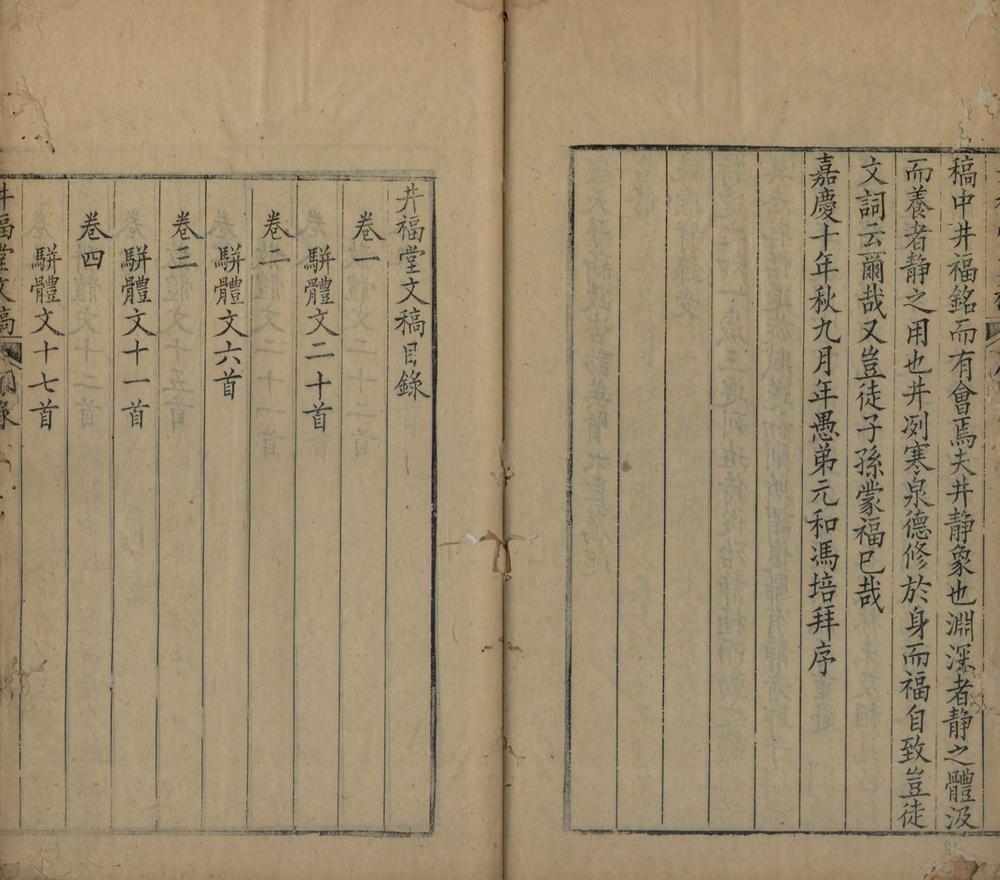 稿中井福銘而有會焉夫井靜象也淵深者靜之體汲
而養者靜之用也井冽寒泉德修於身而福自致豈徒
文詞云爾哉又豈徒子孫蒙福已哉
嘉慶十年秋九月年愚弟元和馮培拜序
井福堂文稿目錄
卷一
駢體文二十首
卷二
駢體文六首
卷三
駢體文十一首
卷四
駢體文十七首
井福堂文稿 目錄